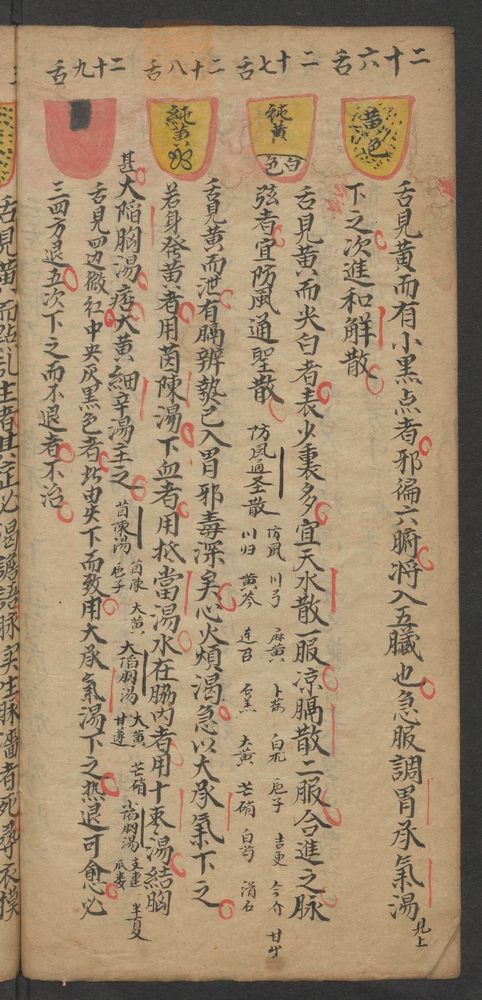 二十六舌
黄色
舌見黄而有小黑点者邪徧六腑将入五臓也急服調胃承氣湯 見上
下之次進和解散
二十七舌
純黄
白色
舌見黄而尖白者表少裏多宜天水散一服凉膈散二服合進之脉
弦者宜防風通聖散 防風通圣散
防風 川弓 麻黄 卜荷 白朮 卮子 吉更 甘艸
川归 黄芩 连召 石羔 大黄 芒硝 白芍 滑石
二十八舌
純黄
舌見黄而泄有膈辨热已入胃邪毒深矣心火煩渴急以大承氣下之
若身發黄者用茵陳湯下血者用抵當湯水在脇内者用十枣湯結胸
甚大陥胸湯痞大黄細辛湯主之 茵陳湯 茵陳 大黄 卮子 大陥胸湯 大黄 芒硝 甘遂 小陥胸湯 半夏 瓜娄
二十九舌
舌見四边微红中央灰黑色者此由失下而致用大承氣湯下之热退可愈必
三四方退五次下之而不退者不治
舌見黄而點乱生者其症必渴譫語脉实生脉濇者死